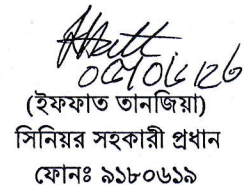 (ইফফাত তানজিয়া)
সিনিয়র সহকারী প্রধান
ফোনঃ ৯১৮০৬১৯